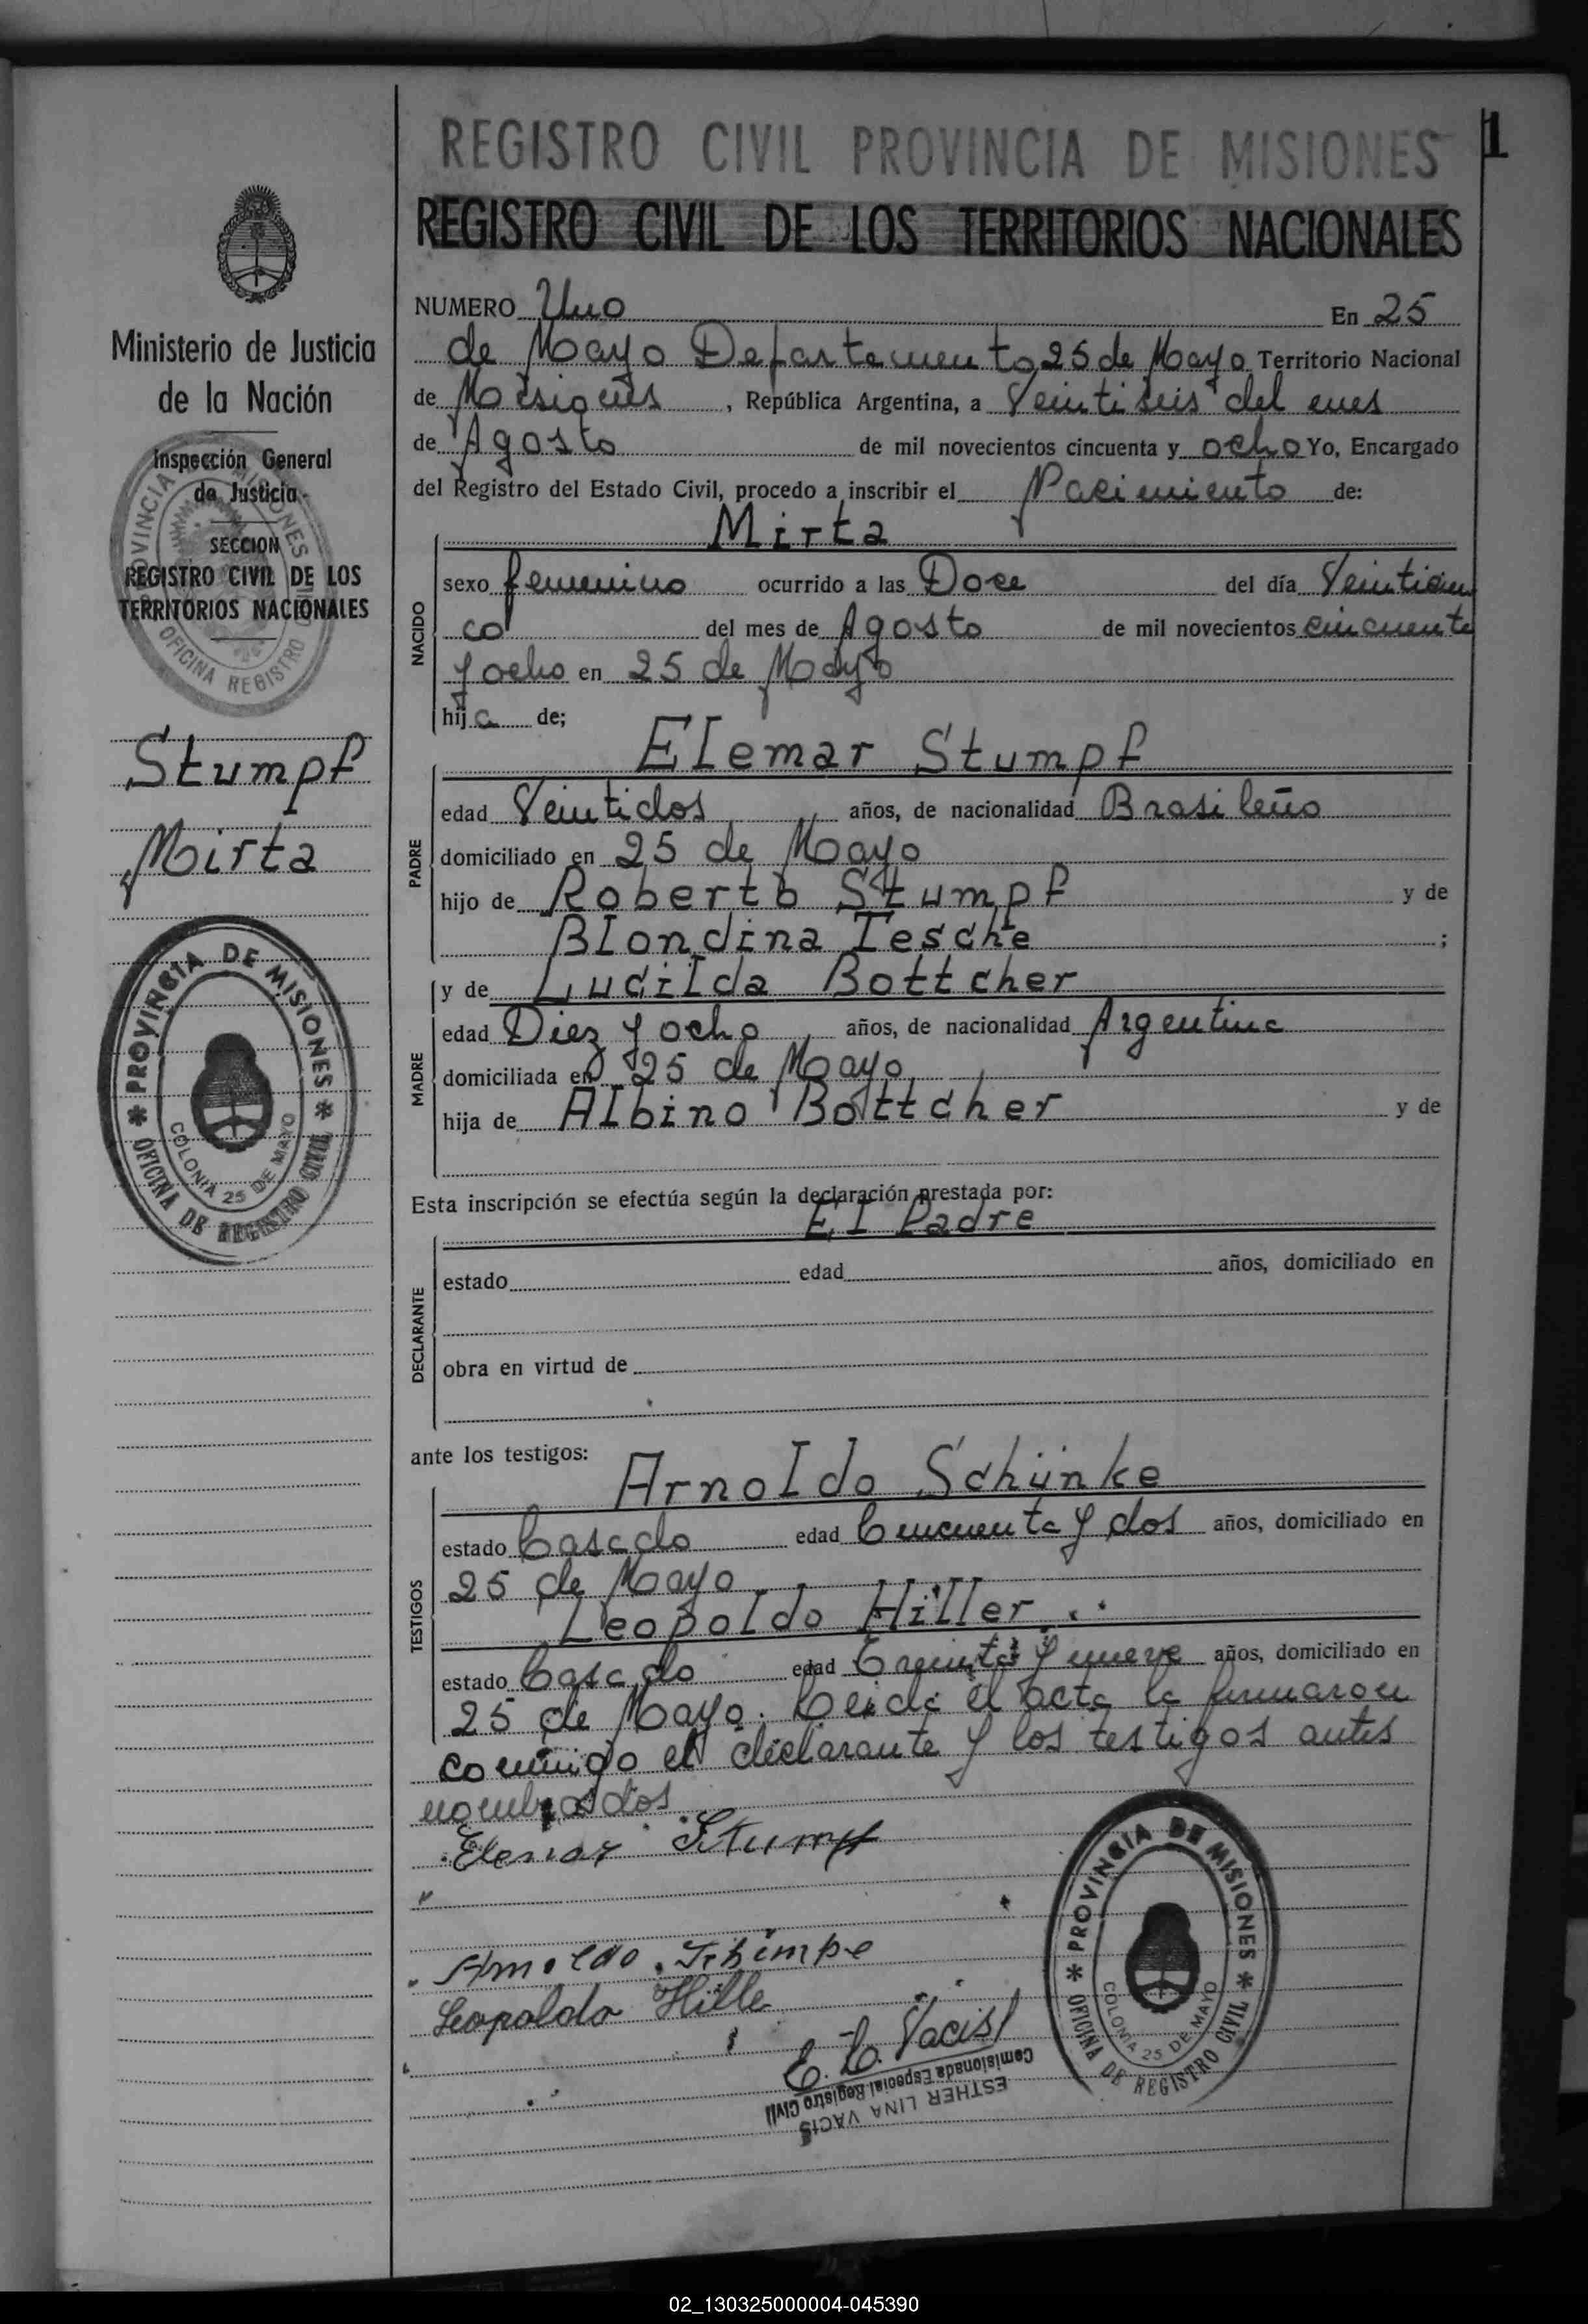 REGISTRO CIVIL PROVINCIA DE MISIONES
1
REGISTRO CIVIL DE LOS TERRITORIOS NACIONALES
Ministerio de Justicia
de la Nación
Inspección General
de Justicia
SECCION
REGISTRO CIVIL DE LOS
TERRITORIOS NACIONALES
PROVINCIA MISIONES
OFICINA REGISTRO
Stumpf
Mirta
* PROVINCIA DE MISIONES *
COLONIA 25 DE MAYO
OFICINA DE REGISTRO CIVIL
NUMERO Uno En 25
de Mayo Departamento 25 de Mayo Territorio Nacional
de Misiones, República Argentina, a Veintiseis del mes
de Agosto de mil novecientos cincuenta y ocho Yo, Encargado
del Registro del Estado Civil, procedo a inscribir el Nacimiento de:
NACIDO
Mirta
sexo femenino ocurrido a las Doce del día Veinticin
co del mes de Agosto de mil novecientos cincuenta
y ocho en 25 de Mayo
hija de;
PADRE
Elemar Stumpf
edad Veintidos años, de nacionalidad Brasileño
domiciliado en 25 de Mayo
hijo de Roberto Stumpf y de
Blondina Tesche ;
MADRE
y de Lucilda Bottcher
edad Diez y ocho años, de nacionalidad Argentina
domiciliada en 25 de Mayo
hija de Albino Bottcher y de
Esta inscripción se efectúa según la declaración prestada por:
DECLARANTE
El Padre
estado edad años, domiciliado en
obra en virtud de
ante los testigos:
TESTIGOS
Arnoldo Schünke
estado Casado edad Cincuenta y dos años, domiciliado en
25 de Mayo
Leopoldo Hiller
estado Casado edad Treinta y nueve años, domiciliado en
25 de Mayo. Leida el acta la firmaron
conmigo el declarante y los testigos antes
nombrados
Elemar Stumpf
Arnoldo
Leopoldo Hille
E. L. Vacis
ESTHER LINA VACIS
Comisionada Especial Registro Civil
* PROVINCIA DE MISIONES *
COLONIA 25 DE MAYO
OFICINA DE REGISTRO CIVIL
02_130325000004-045390